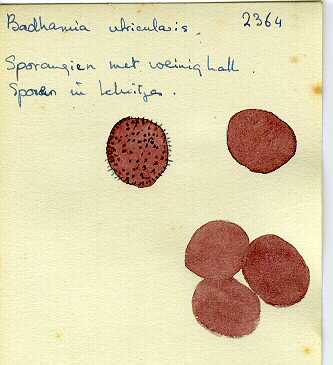 Badhamia utricularis. 2364
Sporangien met weinig kalk.
Sporen in